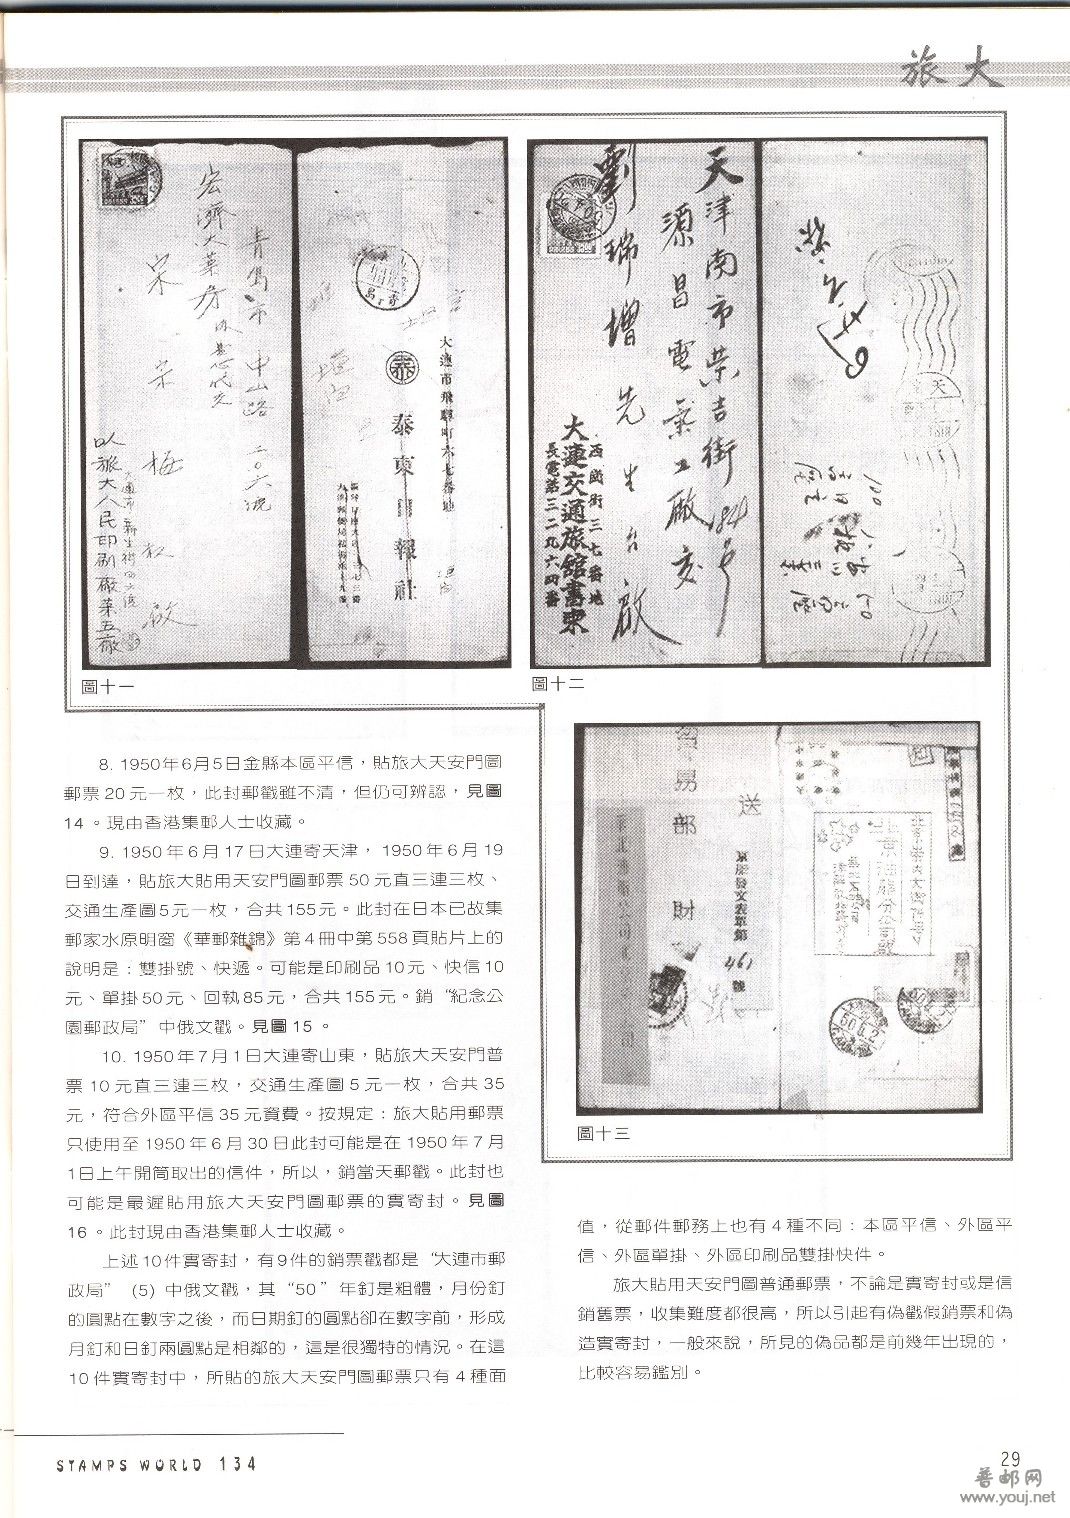 旅大
宏濟大藥房
青島市中山路二〇六號
宋
宋梅松啟
以旅大人民印刷廠第五廠
大連市飛驒町六七番地
泰
泰東日報社
圖十一
天津南市榮吉街184号
源昌電業工廠交
劉瑞增先生台啟
西崗街三七番地
大連交通旅館書柬
長電第三二九六四番
圖十二
貿易部
財
送
京脂發文表單第461號
圖十三
8. 1950年6月5日金縣本區平信，貼旅大天安門圖
郵票20元一枚，此封郵戳雖不清，但仍可辨認，見圖
14。現由香港集郵人士收藏。
9. 1950年6月17日大連寄天津，1950年6月19
日到達，貼旅大貼用天安門圖郵票50元直三連三枚、
交通生產圖5元一枚，合共155元。此封在日本已故集
郵家水原明窗《華郵雜錦》第4冊中第558頁貼片上的
說明是：雙掛號、快遞。可能是印刷品10元、快信10
元、單掛50元、回執85元，合共155元。銷“紀念公
園郵政局”中俄文戳。見圖15。
10. 1950年7月1日大連寄山東，貼旅大天安門普
票10元直三連三枚，交通生產圖5元一枚，合共35
元，符合外區平信35元資費。按規定：旅大貼用郵票
只使用至1950年6月30日此封可能是在1950年7月
1日上午開筒取出的信件，所以，銷當天郵戳。此封也
可能是最遲貼用旅大天安門圖郵票的實寄封。見圖
16。此封現由香港集郵人士收藏。
上述10件實寄封，有9件的銷票戳都是“大連市郵
政局” (5) 中俄文戳，其“50”年釘是粗體，月份釘
的圓點在數字之後，而日期釘的圓點卻在數字前，形成
月釘和日釘兩圓點是相鄰的，這是很獨特的情況。在這
10件實寄封中，所貼的旅大天安門圖郵票只有4種面
值，從郵件郵務上也有4種不同：本區平信、外區平
信、外區單掛、外區印刷品雙掛快件。
旅大貼用天安門圖普通郵票，不論是實寄封或是信
銷舊票，收集難度都很高，所以引起有偽戳假銷票和偽
造實寄封，一般來說，所見的偽品都是前幾年出現的，
比較容易鑑別。
STAMPS WORLD 134
29
普邮网
www.youj.net